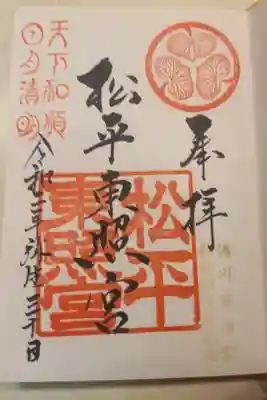 奉拝
松平東照宮
松平
東照宮
天下和順
日月清明
令和三年弥生三十日